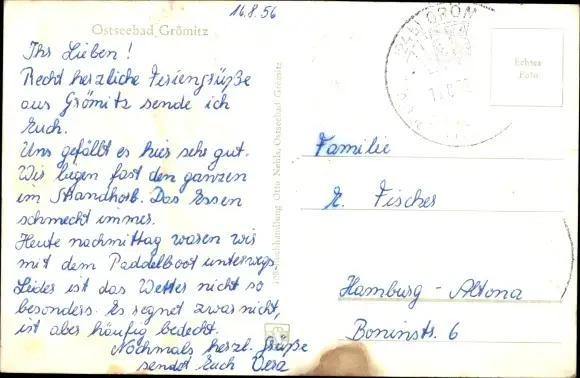 16.8.56
Ostseebad Grömitz
Ihr Lieben!
Recht herzliche Feriengrüße
aus Grömitz sende ich
Euch.
Uns gefällt es hier sehr gut.
Wir liegen fast den ganzen
im Strandkorb. Das Essen
schmeckt immer.
Heute nachmittag waren wir
mit dem Paddelboot unterwegs.
Leider ist das Wetter nicht so
besonders. Es regnet zwar nicht,
ist aber häufig bedeckt.
Nochmals herzl. Grüße
sendet Euch Vera
Buchhandlung Otto Nehls, Ostseebad Grömitz
Echtes
Foto
Familie
E. Fischer
Hamburg - Altona
Boninstr. 6